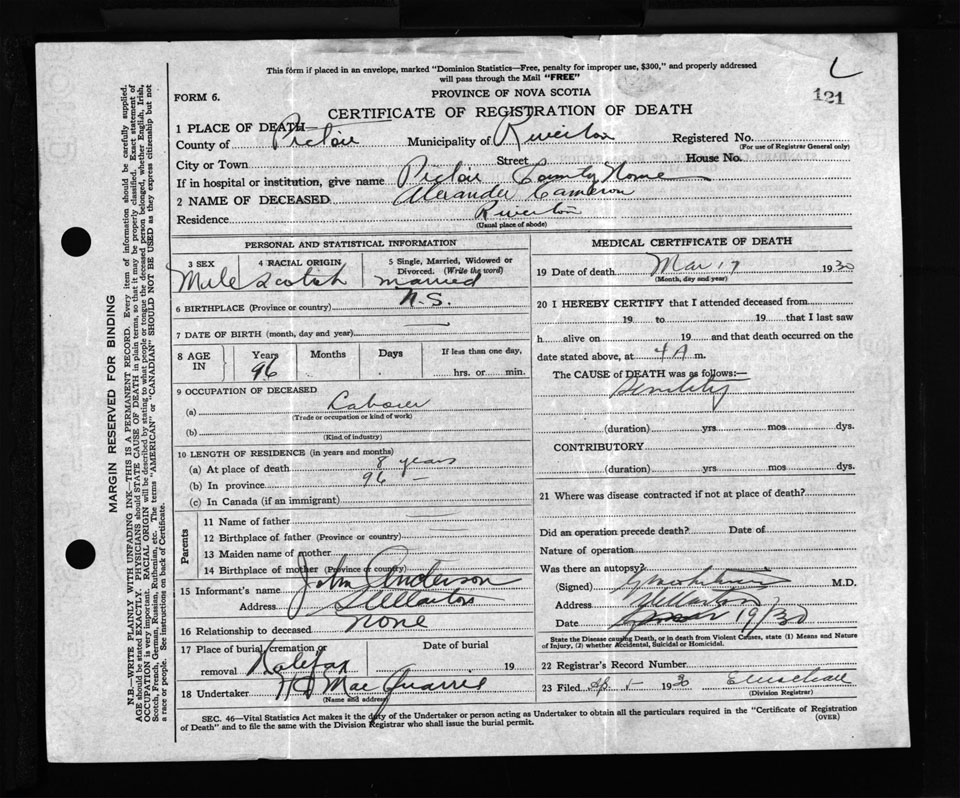 This form if placed in an envelope, marked "Dominion Statistics—Free, penalty for improper use, $300," and properly addressed
will pass through the Mail "FREE"
L
121
FORM 6.
PROVINCE OF NOVA SCOTIA
CERTIFICATE OF REGISTRATION OF DEATH
1 PLACE OF DEATH
County of Pictou Municipality of Riverton Registered No.
(For use of Registrar General only)
City or Town Street House No.
If in hospital or institution, give name Pictou County Home
2 NAME OF DECEASED Alexander Cameron
Residence Riverton
(Usual place of abode)
MARGIN RESERVED FOR BINDING
N.B.—WRITE PLAINLY WITH UNFADING INK—THIS IS A PERMANENT RECORD. Every item of information should be carefully supplied.
AGE should be stated EXACTLY. PHYSICIANS should STATE CAUSE OF DEATH in plain terms, so that it may be properly classified. Exact statement of
OCCUPATION is very important. RACIAL ORIGIN will be described by stating to what people or tongue the deceased person belonged, whether English, Irish,
Scotch, French, German, Russian, Ruthenian, etc. The terms "AMERICAN" or "CANADIAN" SHOULD NOT BE USED as they express citizenship but not
a race or people. See instructions on back of Certificate.
PERSONAL AND STATISTICAL INFORMATION
3 SEX
Male
4 RACIAL ORIGIN
Scotish
5 Single, Married, Widowed or
Divorced. (Write the word)
Married
6 BIRTHPLACE (Province or country) N.S.
7 DATE OF BIRTH (month, day and year) —
8 AGE IN Years Months Days If less than one day,
96 hrs. or min.
9 OCCUPATION OF DECEASED
(a) Laborer
(Trade or occupation or kind of work)
(b)
(Kind of industry)
10 LENGTH OF RESIDENCE (in years and months)
(a) At place of death 8 years
(b) In province 96 —
(c) In Canada (if an immigrant)
Parents
11 Name of father
12 Birthplace of father (Province or country)
13 Maiden name of mother
14 Birthplace of mother (Province or country)
15 Informant's name John Anderson
Address Stellarton
16 Relationship to deceased none
17 Place of burial, cremation or
removal Halifax
Date of burial
19
18 Undertaker
(Name and address)
MEDICAL CERTIFICATE OF DEATH
19 Date of death Mar 17 1930
(Month, day and year)
20 I HEREBY CERTIFY that I attended deceased from
19 to 19 that I last saw
h alive on 19 and that death occurred on the
date stated above, at 4 A m.
The CAUSE OF DEATH was as follows:—
Senility
(duration) yrs mos dys.
CONTRIBUTORY
(duration) yrs mos dys.
21 Where was disease contracted if not at place of death?
Did an operation precede death? Date of
Nature of operation
Was there an autopsy?
(Signed) M.D.
Address Stellarton
Date 19/30
State the Disease causing Death, or in death from Violent Causes, state (1) Means and Nature
of Injury, (2) whether Accidental, Suicidal or Homicidal.
22 Registrar's Record Number
23 Filed Ap 1 1930
(Division Registrar)
SEC. 46—Vital Statistics Act makes it the duty of the Undertaker or person acting as Undertaker to obtain all the particulars required in the "Certificate of Registration
of Death" and to file the same with the Division Registrar who shall issue the burial permit.
(OVER)